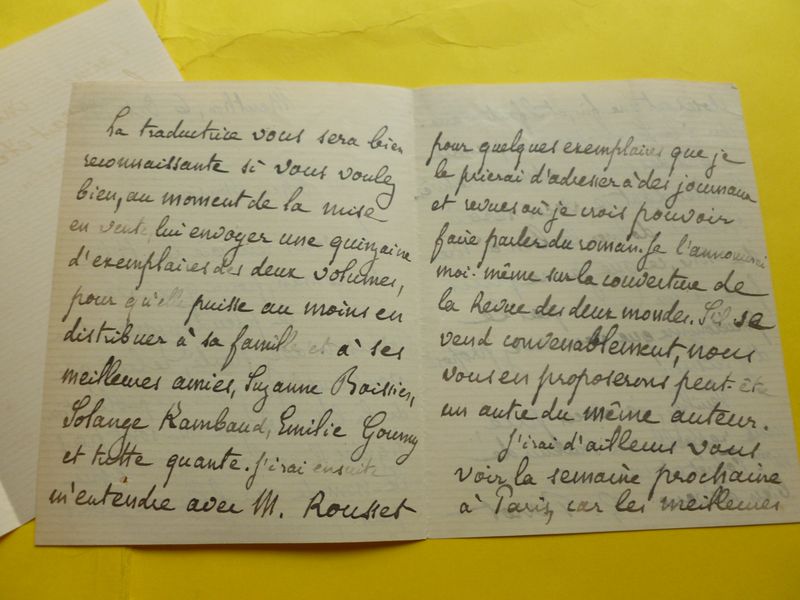 La traductrice vous sera bien
reconnaissante si vous voulez
bien, au moment de la mise
en vente, lui envoyer une quinzaine
d'exemplaires des deux volumes,
pour qu'elle puisse au moins en
distribuer à sa famille et à ses
meilleures amies, Suzanne Boissier,
Solange Rambaud, Emilie Goumy
et tutte quante. J'irai ensuite
m'entendre avec M. Rousset
pour quelques exemplaires que je
le prierai d'adresser à des journaux
et revues où je crois pouvoir
faire parler du roman. Je l'annoncerai
moi-même sur la couverture de
la Revue des deux mondes. S'il se
vend convenablement, nous
vous en proposerons peut-être
un autre du même auteur.
J'irai d'ailleurs vous
voir la semaine prochaine
à Paris, car les meilleures